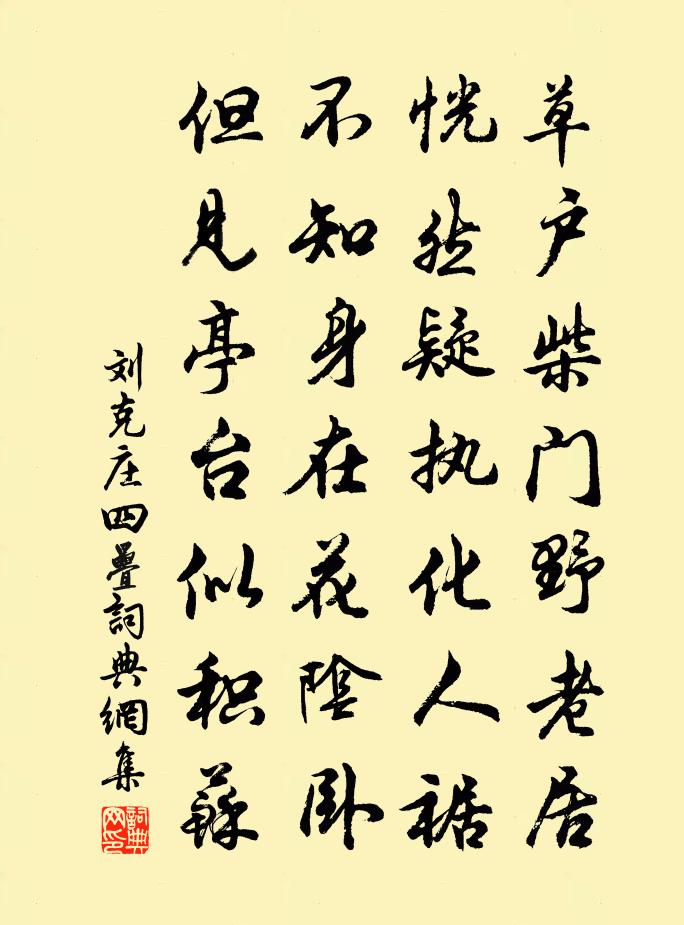 草户柴门野老居
恍然疑执化人裾
不知身在花陰卧
但見亭台似积蘇
刘克庄四疊詞典網集
詞典网印